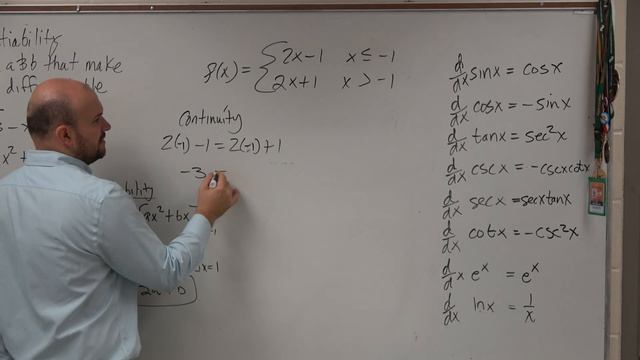 a & b that make
f(x) = { 2x-1 x ≤ -1
2x+1 x > -1
continuity
2(-1)-1 = 2(-1)+1
-3
x²+
x²+6x
x=1
d/dx sinx = cosx
d/dx cosx = -sinx
d/dx tanx = sec²x
d/dx cscx = -cscxcotx
d/dx secx = secxtanx
d/dx cotx = -csc²x
d/dx e^x = e^x
d/dx lnx = 1/x